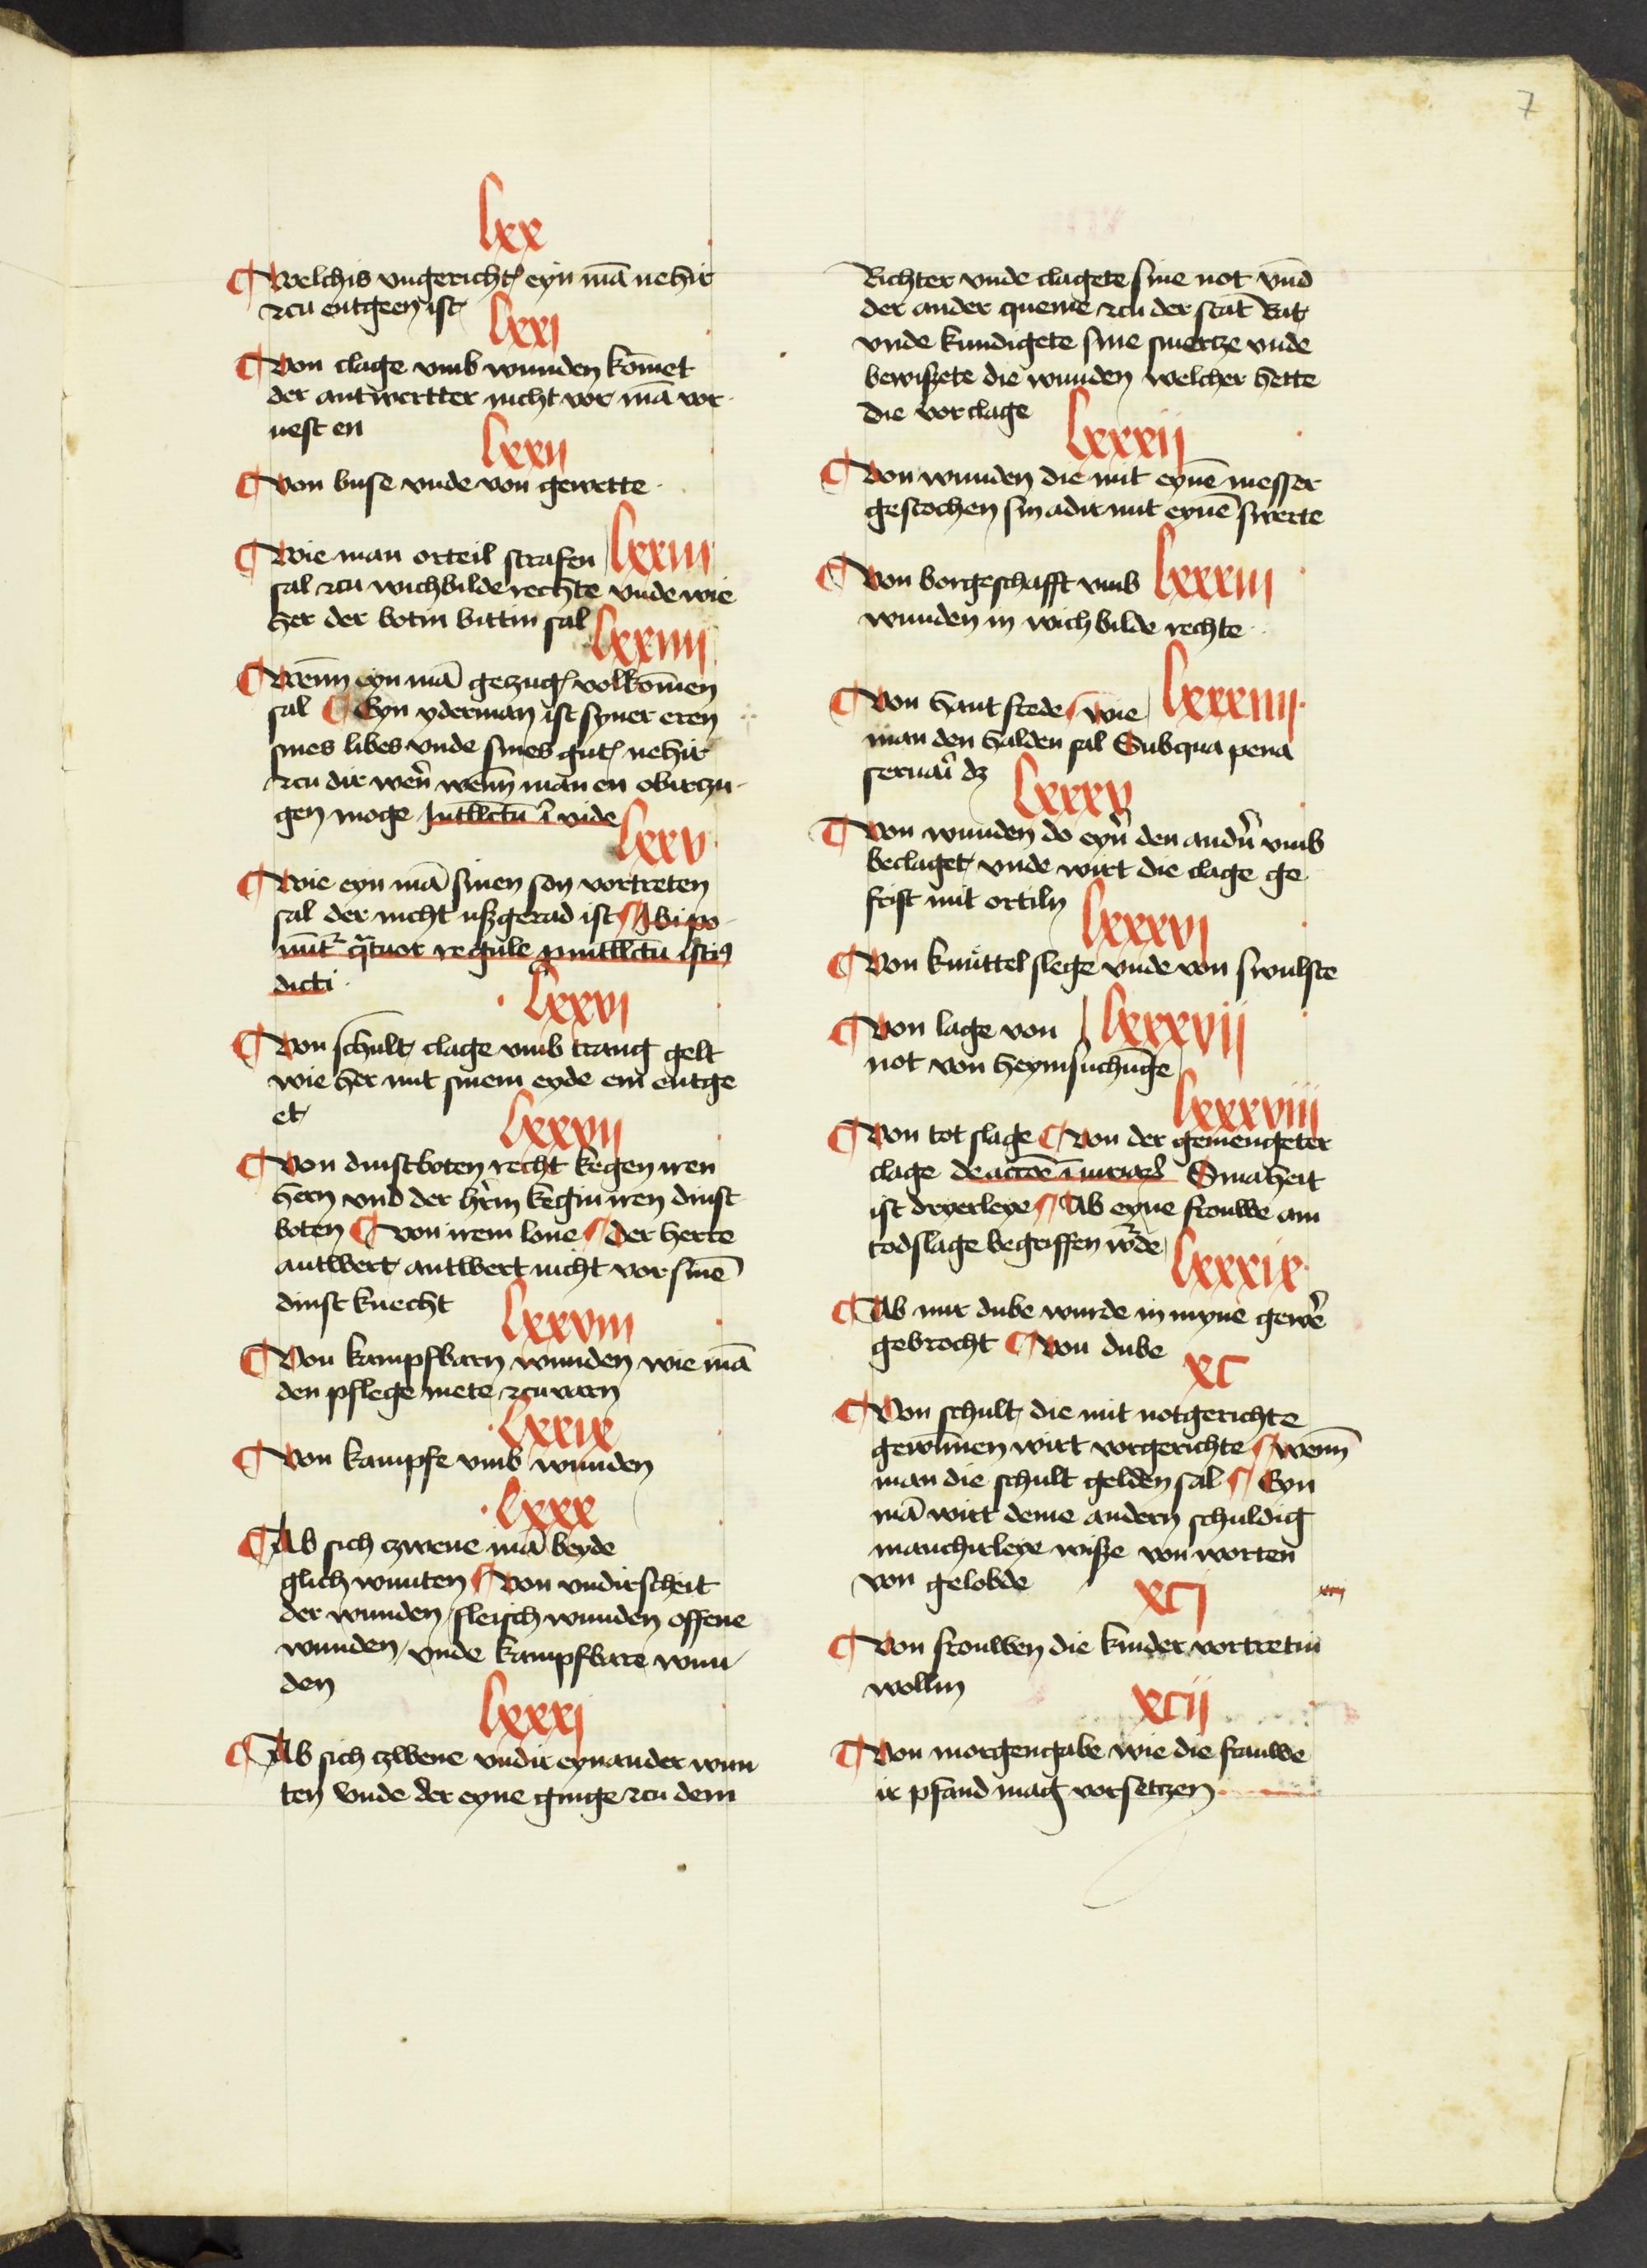 7
lxx
¶ Welchis vngericht eyn mā nehir
zcu entgeen ist
lxxi
¶ Von clage vmb wunden kōmet
der antwertter nicht vor mā vor
uest en
lxxii
¶ Von buse vnde von gewette
¶ Wie man orteil strafen lxxiii
sal zcu wichbilde rechte vnde wie
her der botin bittin sal
lxxiiii
¶ Wenn eyn mā gezug volkōmen
sal ¶ Eyn yderman ist syner eren
sines libes vnde sines gut nehir
zcu dir wen wenn man en obirzcu
gen moge Intllctū vide
lxxv
¶ Wie eyn mā sinen son vortreten
sal der nicht ußgerad ist Ibi po
nūt qtuor regule intllctū isti9
dicti
lxxvi
¶ Von schult clage vmb trang gelt
wie her mit sinem eyde em entge
et
lxxvii
¶ Von dinstboten recht kegen iren
hern vnd der hrin kegin iren dinst
boten ¶ Von irem lone Der herre
antwert antwert nicht vor sinē
dinst knecht
lxxviii
¶ Von kampfbarn wunden wie mā
den pflege mete zcuvarn
lxxix
¶ Von kampfe vmb wunden
lxxx
¶ Ab sich czwene mā beyde
glich wunten Von vndirscheit
der wunden fleisch wunden offene
wunden vnde kampfbare wun
den
lxxxi
¶ Ab sich czwene vndir eynander wun
ten vnde der eyne ginge zcu dem
Richter vnde clagete sine not vnd
der ander queme zcu der stat Rat
vnde kundigete sine smertze vnde
bewißete die wunden welcher hette
die vorclage
lxxxij
¶ Von wunden die mit eynē messer
gestochen sin adir mit eynē swerte
¶ Von borgeschafft vmb lxxxiii
wunden in wichbilde rechte
¶ Von hant frede wie lxxxiiii
man den halden sal Sub qua pena
seruari dz
lxxxv
¶ Von wunden do eyn den andn vmb
beclaget vnde wirt die clage ge
frist mit ortiln
lxxxvi
¶ Von knuttel slege vnde von swulste
¶ Von lage von lxxxvij
not von heymsuchūge
lxxxviij
¶ Von tot slage ¶ Von der gemengeter
clage de accōe Smaheit
ist dryerleye Ab eyne frouwe am
todslage begriffen wde
lxxxix
¶ Ab mir dube wurde in myne gewe
gebrocht ¶ Von dube
xc
¶ Von schult die mit notgerichte
gewūnen wirt vorgerichte wenn
man die schult gelden sal Eyn
mā wirt deme andern schuldig
manchirleye wiße von worten
von gelobde
xcj
¶ Von frouwen die kinder vortretin
wollin
xcij
¶ Von morgengabe wie die frauwe
ir pfand mag vorsetzen